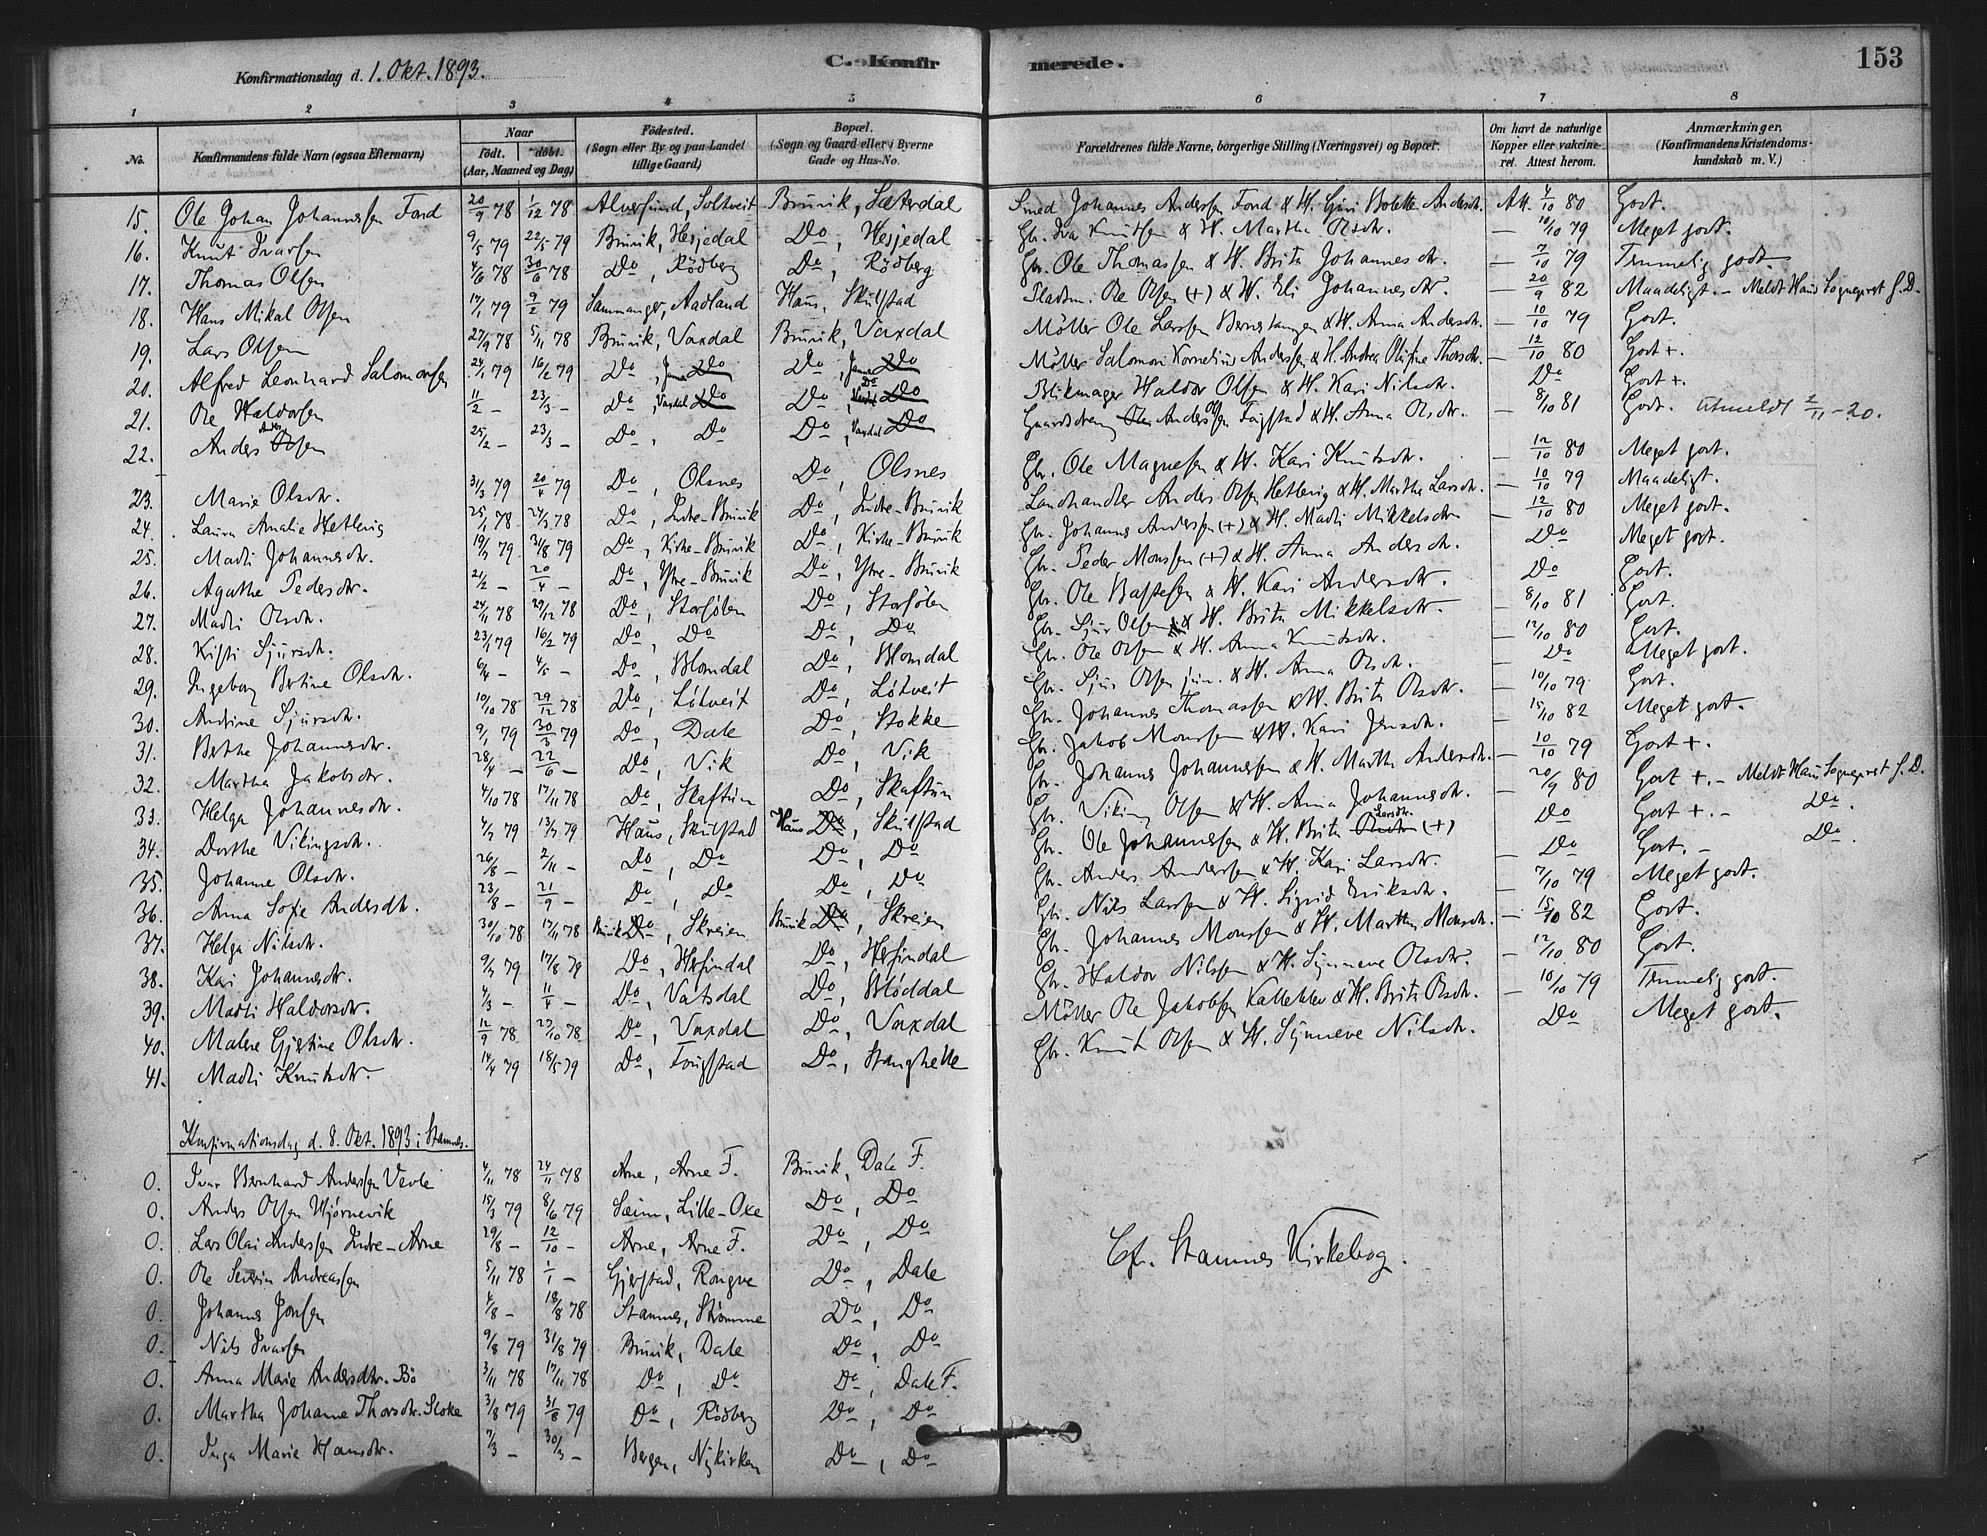 Konfirmationsdag d. 1. Okt. 1893. C. Konfirmerede. 153
1 2 3 4 5 6 7 8
No. Konfirmandens fulde Navn (ogsaa Efternavn) Naar Födt. döbt. (Aar, Maaned og Dag) Födested. (Sogn eller By og paa Landet tillige Gaard) Bopæl. (Sogn og Gaard eller i Byerne Gade og Hus-No. Forældrenes fulde Navne, borgerlige Stilling (Næringsvei) og Bopæl. Om havt de naturlige Kopper eller vakcineret. Attest herom. Anmærkninger. (Konfirmandens Kristendomskundskab m. V.)
15. Ole Johan Johannessen Ford 20/9 78 1/12 78 Alversund, Soltveit Bruvik, Sætrdal Smed Johannes Anderssen Fond & H. Guri Bolette Andersdr. Att. 4/10 80 Godt.
16. Knut Ivarsen 9/5 79 22/5 79 Bruvik, Hesjedal Do, Hesjedal Gbr. Iva Knutsen & H. Martha Olsdr. — 10/10 79 Meget godt.
17. Thomas Olsen 4/6 78 30/6 78 Do, Rödberg Do, Rödberg Gbr. Ole Thomassen & H. Brita Johannesdr. — 7/10 79 Temmelig godt.
18. Hans Mikal Olsen 17/1 79 9/2 79 Samnanger, Aadland Haus, Skulstad Pladsm. Ole Olsen (+) & H. Eli Johannesdr. — 20/9 82 Maadeligt. – Meldt Haus Sogneprest S.D.
19. Lars Olsen 27/9 78 5/11 78 Bruvik, Vaxdal Bruvik, Vaxdal Möller Ole Larssen Bernestangen & H. Anna Andersdr. — 10/10 79 Godt.
20. Alfred Leonhard Salomonsen 24/1 79 16/2 79 Do, Do Do, Do Möller Salomon Kornelius Anderssen & H. Andrea Olufine Thorsdr. — 12/10 80 Godt +.
21. Ole Haldorsen 11/2 – 23/3 – Do, Vaxdal Do Do, Do Blikmager Haldor Olsen & H. Kari Nilsdr. Do Godt +.
22. Anders Anders Olsen 25/2 – 23/3 – Do, Do Do, Vaxdal Do Gaardsdreng Ole Anderssen Fugstad & H. Anna Olsdr. — 8/10 81 Godt. Utmeldt 2/11 – 20.
23. Marie Olsdtr. 31/3 79 20/4 79 Do, Olsnes Do, Olsnes Gbr. Ole Magnesen & H. Kari Knutsdtr. — 12/10 80 Meget godt.
24. Laura Amalie Hetlevig 25/1 78 24/3 78 Do, Indre-Bruvik Do, Indre-Bruvik Landhandler Anders Olsen Hetlevig & H. Martha Larsdr. — 10/10 79 Maadeligt.
25. Madli Johannesdtr. 19/7 79 31/8 79 Do, Kirke-Bruvik Do, Kirke-Bruvik Gbr. Johannes Anderssen (+) & H. Madli Mikkelsdtr — 12/10 80 Meget godt.
26. Agathe Pedersdtr. 21/2 – 20/4 – Do, Ytre-Bruvik Do, Ytre-Bruvik Gbr. Peder Monssen (+) & H. Anna Andersdr. Do Meget godt.
27. Madli Olsdr. 24/11 78 29/12 78 Do, Storfölen Do, Storfölen Gbr. Ole Bastesen & H. Kari Andersdtr. Do Godt.
28. Kisti Sjursdr. 23/1 79 16/2 79 Do, Do Do, Do Gbr. Sjur Olsen & H. Brita Mikkelsdtr. — 8/10 81 Godt.
29. Ingeborg Bertine Olsdtr. 6/4 – 4/5 – Do, Blomdal Do, Blomdal Gbr. Ole Olsen & H. Anna Knutsdtr. — 12/10 80 Godt.
30. Andrine Sjursdtr. 10/10 78 29/12 78 Do, Lötveit Do, Lötveit Gbr. Sjur Olsen jun. & H. Anna Olsdr. — Do Meget godt.
31. Berthe Johannesdtr. 9/1 79 30/3 79 Do, Dale Do, Stokke Gbr. Johannes Thomassen & H. Brita Olsdtr. — 10/10 79 Godt.
32. Martha Jakobsdtr. 28/4 – 22/6 – Do, Vik Do, Vik Gbr. Jakob Monssen & H. Kari Jensdtr. — 15/10 82 Meget godt.
33. Helga Johannesdtr. 4/10 78 17/11 78 Do, Skaftun Do, Skaftun Gbr. Johannes Johannessen & H. Martha Andersdtr — 10/10 79 Godt +.
34. Dorthe Vikingsdr. 4/7 79 13/7 79 Haus, Skulstad Haus Do, Skulstad Gbr. Viking Olsen & H. Anna Johannesdr. — 20/9 80 Godt +. – Meldt Haus Sogneprest S.D.
35. Johanne Olsdr. 26/8 – 2/11 – Do, Do Do, Do Gbr. Ole Johannessen & H. Brita Larsdr. (+) Do Godt +. – Do.
36. Anna Sofie Andersdtr. 23/8 – 21/9 – Do, Do Do, Do Gbr. Anders Anderssen & H. Kari Larsdtr. — Do Godt. – Do.
37. Helga Nilsdr. 30/10 78 17/11 78 Bruvik Do, Skreien Bruvik Do, Skreien Gbr. Nils Larssen & H. Sigrid Eriksdtr. — 7/10 79 Meget godt.
38. Kari Johannesdtr. 9/7 79 17/8 79 Do, Herfindal Do, Herfindal Gbr. Johannes Monssen & H. Martha Monsdr. — 15/10 82 Godt.
39. Madli Haldorsdtr. 4/3 – 11/4 – Do, Vatsdal Do, Bløddal Gbr. Haldor Nilssen & H. Synneve Olsdtr. — 12/10 80 Godt.
40. Malene Gjertine Olsdtr. 12/9 78 27/10 78 Do, Vaxdal Do, Vaxdal Möller Ole Jakobsen Kallekleiv & H. Brita Olsdr. — 10/10 79 Temmelig godt.
41. Madli Knutsdtr. 14/4 79 18/5 79 Do, Fougstad Do, Stanghelle Gbr. Knut Olsen & H. Synneve Nilsdr. Do Meget godt.
Konfirmationsdag d. 8. Okt. 1893 i Stamnes.
0. Ivar Bernhard Anderssen Vevle 4/11 78 24/11 78 Arne, Arne F. Bruvik, Dale F.
0. Anders Olsen Mjørnevik 15/3 79 8/6 79 Sæim, Lille-Oxe Do, Do
0. Lars Olai Anderssen Indre-Arne 29/8 – 12/10 – Arne, Arne F. Do, Do
0. Ole Severin Andreassen 5/11 78 1/1 – Gjerstad, Rongve Do, Dale
Cf. Stamnes Kirkebog.
0. Johannes Jonsen 4/8 – 18/8 78 Stamnes, Strømme Do, Do
0. Nils Ivarsen 9/8 79 31/8 79 Bruvik, Dale Do, Do
0. Anna Marie Andersdtr. Bö 3/11 78 17/11 78 Do, Do Do, Dale F.
0. Martha Johanne Thorsdr. Stoke 3/8 79 31/8 79 Do, Rödberg Do, Do
0. Inga Marie Hansdtr. 7/3 – 30/3 – Bergen, Nykirken Do, Do